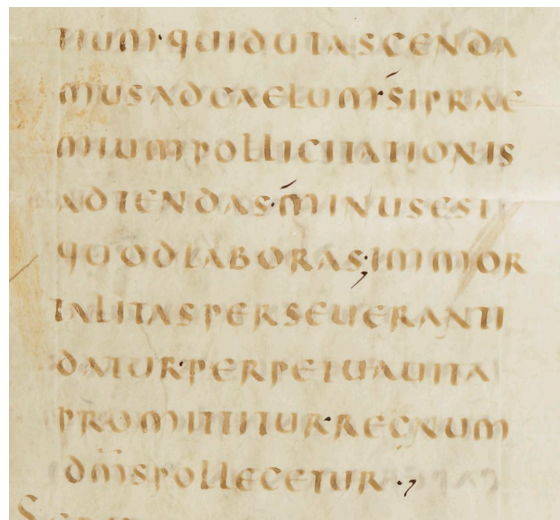 tium·quidutascenda
musadcaelum·siprae
miumpollicitationis
adtendas·minusest
quodlaboras;immor
talitasperseueranti
datur·perpetuauita
promittitur·regnum
dm̅spollecetur·,